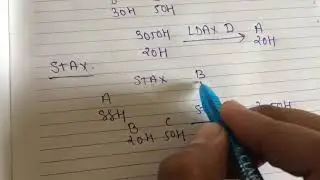 30H 50H
3050H LDAX D A
20H 20H
STAX.
STAX B
A
88H
B C
20H 50H